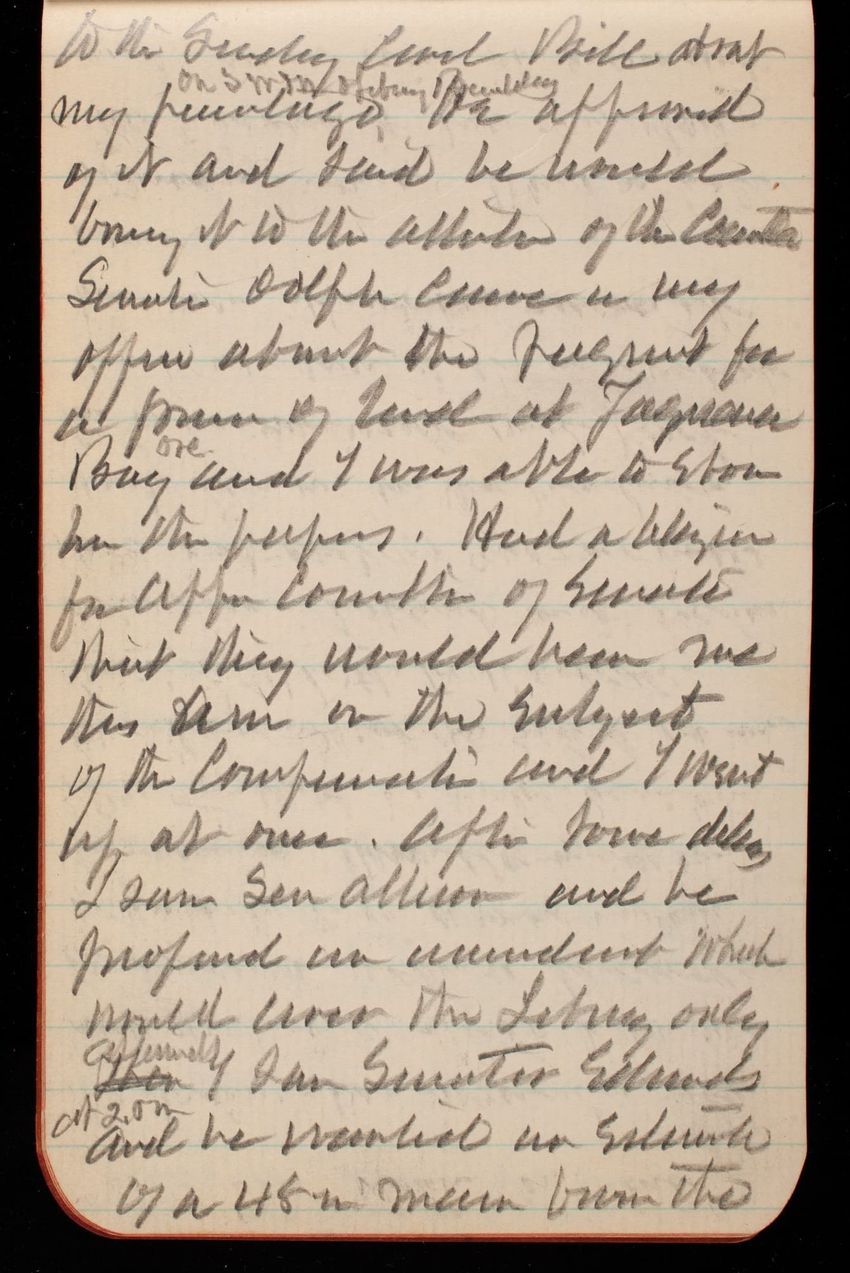 to the Sunday Civil Bill about
on
my privilege, He approved
of it and said he would
bring it to the attention of the Committee
Senator Dolph came in my
office about the for
a of land at Yaquina
ore
Bay and I was able to show
him the papers. Had a
for App Committee of Senate
that they would hear me
this on the subject
of the and I went
up at once. After some delay
I saw Sen Allison and he
proposed an amendment which
would cover the Library only
afterwards
I saw Senator Edmunds
at 2.
and he wanted an estimate
of a 48 in main from the